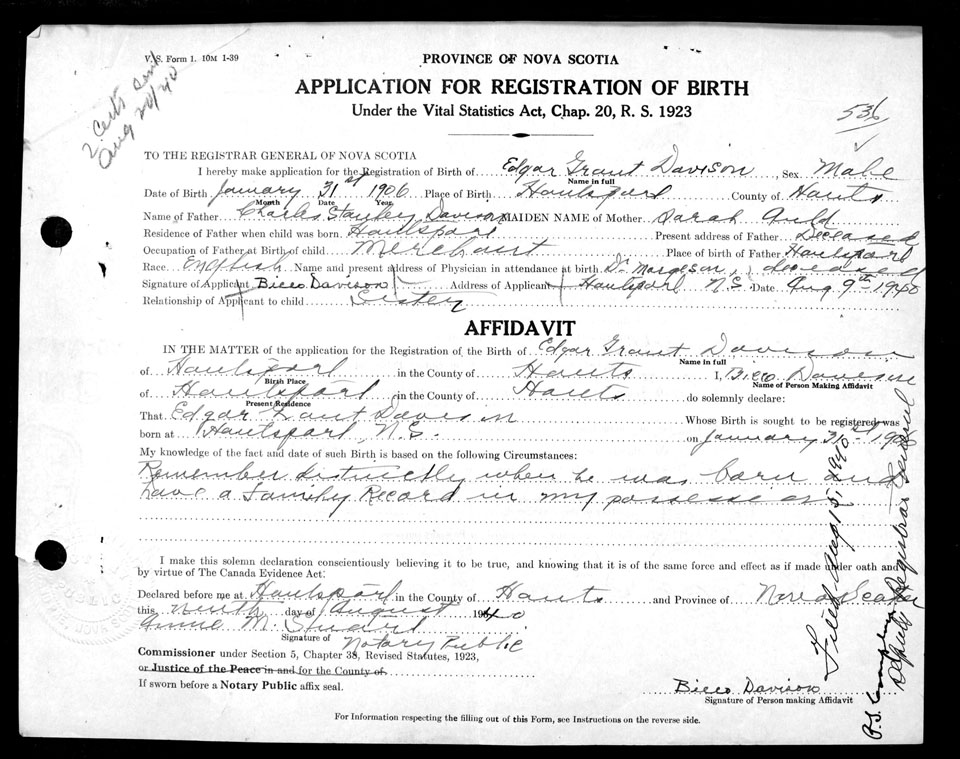 V. S. Form 1. 10M 1-39
2 Certs sent
Aug 20/40
PROVINCE OF NOVA SCOTIA
APPLICATION FOR REGISTRATION OF BIRTH
Under the Vital Statistics Act, Chap. 20, R. S. 1923
536
TO THE REGISTRAR GENERAL OF NOVA SCOTIA
I hereby make application for the Registration of Birth of Edgar Grant Davison Sex Male
Name in full
Date of Birth January 31st 1906 Place of Birth Hantsport County of Hants
Month Date Year
Name of Father Charles Stanley Davison MAIDEN NAME of Mother Sarah Auld
Residence of Father when child was born Hantsport Present address of Father Deceased
Occupation of Father at Birth of child Merchant Place of birth of Father Hantsport
Race English Name and present address of Physician in attendance at birth Dr Margeson, deceased
Signature of Applicant Bicco Davison Address of Applicant Hantsport N.S. Date Aug 9th 1940
Relationship of Applicant to child Sister
AFFIDAVIT
IN THE MATTER of the application for the Registration of the Birth of Edgar Grant Davison
Name in full
of Hantsport in the County of Hants I, Bicco Davison
Birth Place Name of Person Making Affidavit
of Hantsport in the County of Hants do solemnly declare:
Present Residence
That Edgar Grant Davison Whose Birth is sought to be registered was
born at Hantsport, N.S. on January 31st 1906
My knowledge of the fact and date of such Birth is based on the following Circumstances:
Remember distinctly when he was born and
have a Family Record in my possession
I make this solemn declaration conscientiously believing it to be true, and knowing that it is of the same force and effect as if made under oath and
by virtue of The Canada Evidence Act:
Declared before me at Hantsport in the County of Hants and Province of Nova Scotia
this ninth day of August 1940
Annie M. Stuart
Signature of Notary Public
Commissioner under Section 5, Chapter 38, Revised Statutes, 1923,
or Justice of the Peace in and for the County of
If sworn before a Notary Public affix seal.
Bicco Davison
Signature of Person making Affidavit
For Information respecting the filling out of this Form, see Instructions on the reverse side.
Filed Aug 15, 1940
Deputy Registrar General